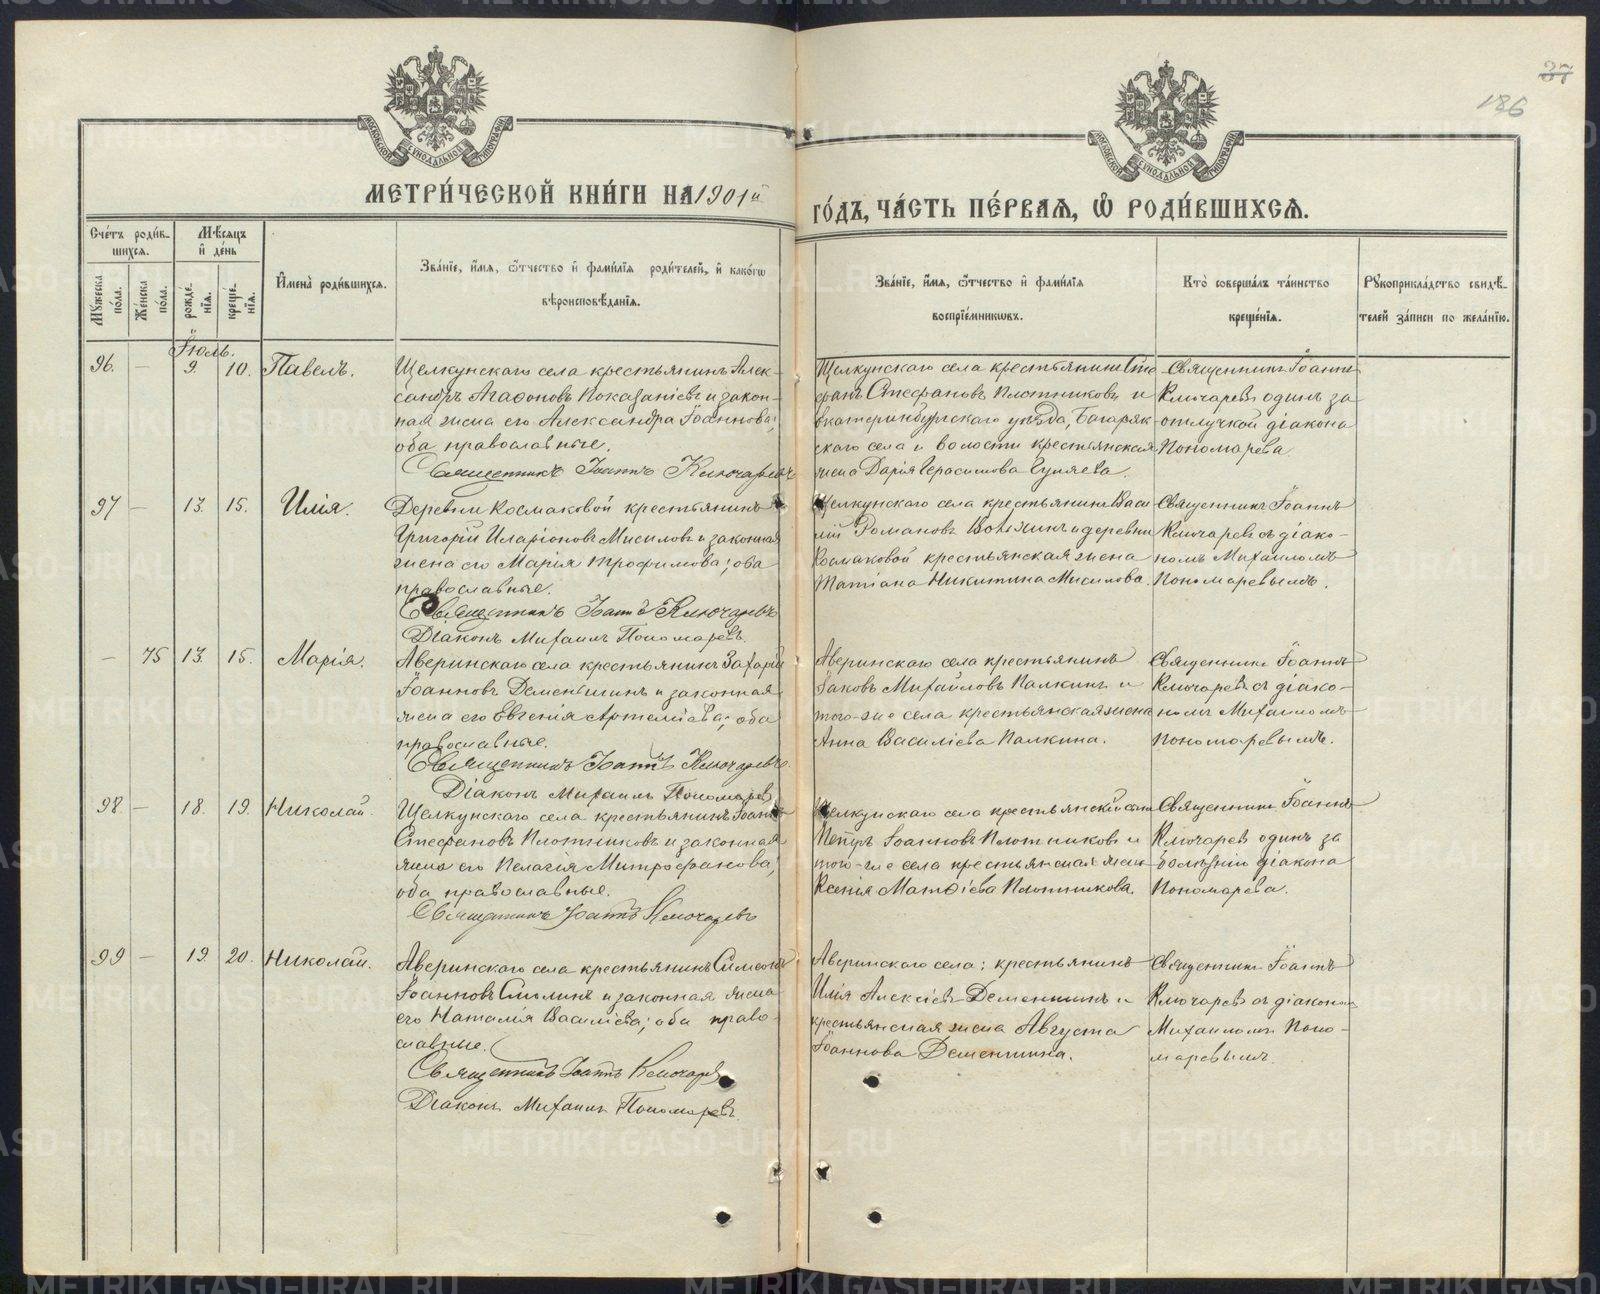 37
186
МЕТРИ́ЧЕСКОЙ КНИ́ГИ НА 1901й
ГО́ДЪ, ЧА́СТЬ ПЕ́РВАѦ, Ѽ РОДИ́ВШИХСѦ.
Сче́тъ роди́в-
шихся.
Мѣ́сяцъ
и де́нь
Мꙋ́жеска по́ла.
Же́нска по́ла.
рожде́-
нїя.
креще́-
нїя.
Имена̀ роди́вшихся.
Зва́нїе, и́мя, ѻ́тчество и фами́лїя роди́телей, и како́гѡ
вѣроисповѣ́данїя.
Зва́нїе, и́мя, ѻ́тчество и фами́лїя
воспрїе́мникѡвъ.
Кто̀ соверша́лъ та́инство
креще́нїя.
Рꙋкоприкла́дство свидѣ́-
телей за́писи по жела́нїю.
Іюль.
96. — 9. 10. Павелъ.
Щелкунскаго села крестьянинъ Алек-
сандръ Агафоновъ Показаніевъ и закон-
ная жена его Александра Іоаннова;
оба православные.
Священникъ Іоаннъ Ключаревъ
Щелкунскаго села крестьянинъ Сте-
фанъ Стефановъ Плотниковъ и
Екатеринбургскаго уѣзда, Багаряк-
скаго села и волости крестьянская
жена Дарія Герасимова Гуляева.
Священникъ Іоаннъ
Ключаревъ одинъ за
отлучкой діакона
Пономарева.
97 — 13. 15. Илія.
Деревни Космаковой крестьянинъ
Григорій Иларіоновъ Мисиловъ и законная
жена его Марія Трофимова; оба
православные.
Священникъ Іоаннъ Ключаревъ
Діаконъ Михаилъ Пономаревъ.
Щелкунскаго села крестьянинъ Васи-
лій Романовъ и деревни
Космаковой крестьянская жена
Татіана Никитина Мисилова.
Священникъ Іоаннъ
Ключаревъ съ діако-
номъ Михаиломъ
Пономаревымъ.
— 75 13. 15. Марія.
Аверинскаго села крестьянинъ Захарій
Іоанновъ Деменьшинъ и законная
жена его Евгенія Артеміева; оба
православные.
Священникъ Іоаннъ Ключаревъ.
Діаконъ Михаилъ Пономаревъ
Аверинскаго села крестьянинъ
Іаковъ Михайловъ Палкинъ и
того-же села крестьянская жена
Анна Василіева Палкина.
Священникъ Іоаннъ
Ключаревъ съ діако-
номъ Михаиломъ
Пономаревымъ.
98 — 18. 19. Николай.
Щелкунскаго села крестьянинъ Іоаннъ
Стефановъ Плотниковъ и законная
жена его Пелагія Митрофанова;
оба православные.
Священникъ Іоаннъ Ключаревъ
Щелкунскаго села крестьянскій сынъ
Петръ Іоанновъ Плотниковъ и
того-же села крестьянская жена
Ксенія Матѳіева Плотникова.
Священникъ Іоаннъ
Ключаревъ одинъ за
болѣзнію діакона
Пономарева.
99 — 19. 20. Николай.
Аверинскаго села крестьянинъ Симеонъ
Іоанновъ Смолинъ и законная жена
его Наталія Василіева; оба право-
славные.
Священникъ Іоаннъ Ключаревъ
Діаконъ Михаилъ Пономаревъ.
Аверинскаго села: крестьянинъ
Илія Алексіевъ Деменшинъ и
крестьянская жена Августа
Іоаннова Деменшина.
Священникъ Іоаннъ
Ключаревъ съ діакономъ
Михаиломъ Поно-
маревымъ.